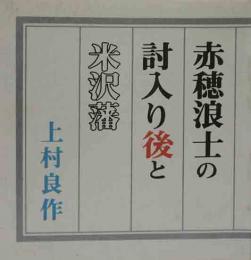 赤穂浪士の
討入り後と
米沢藩
上村良作